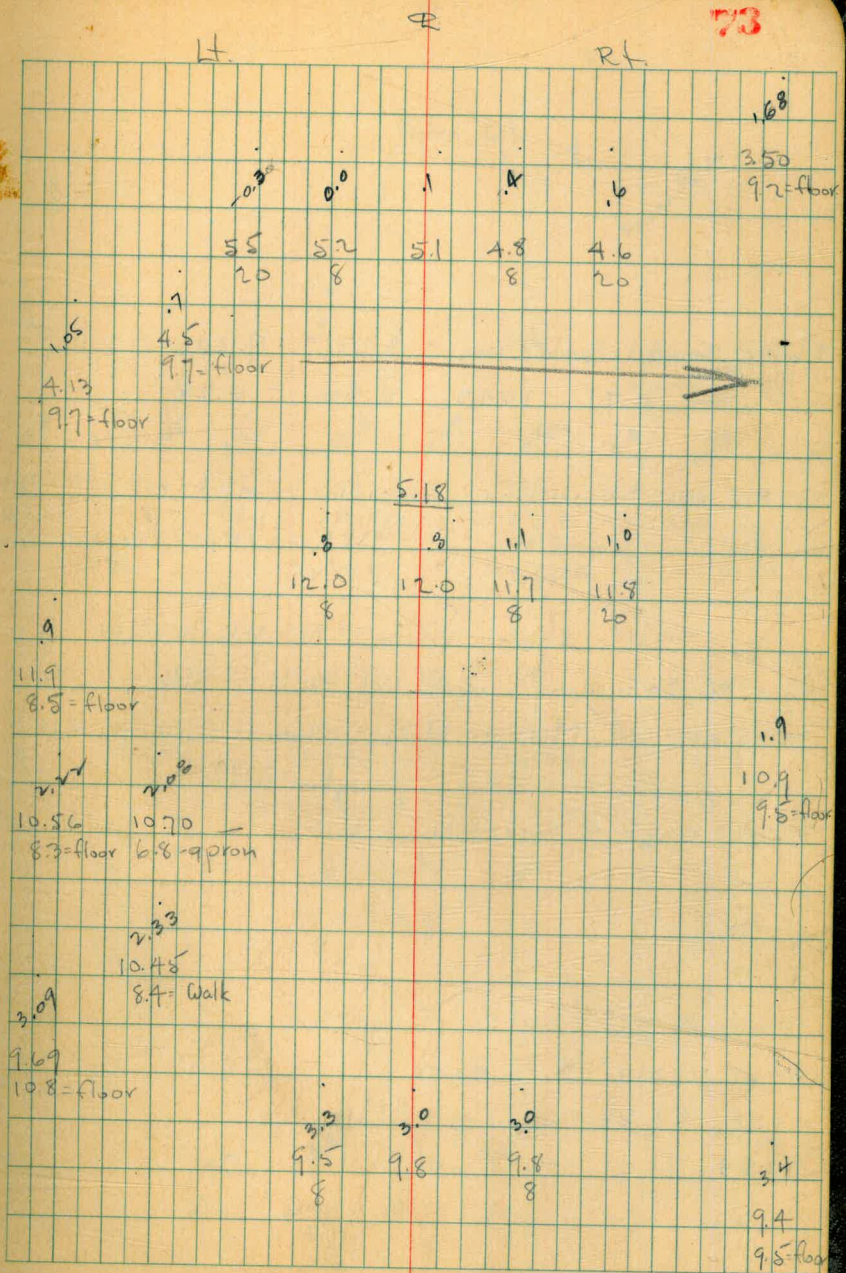 73
Lt. ℄ Rt.
1.68
3.50
9.2=floor
-0.3 0.0 .1 .4 .6
5.5 5.2 5.1 4.8 4.6
20 8 8 20
.7
4.5
9.7=floor
1.05
4.13
9.7=floor
5.18
.8 .8 1.1 1.0
12.0 12.0 11.7 11.8
8 8 20
.9
11.9
8.5=floor
1.9
10.9
9.5=floor
2.22 2.08
10.56 10.70
8.3=floor 6.8-apron
2.33
10.45
8.4=Walk
3.09
9.69
10.8=floor
3.3 3.0 3.0
9.5 9.8 9.8
8 8
3.4
9.4
9.5=floor